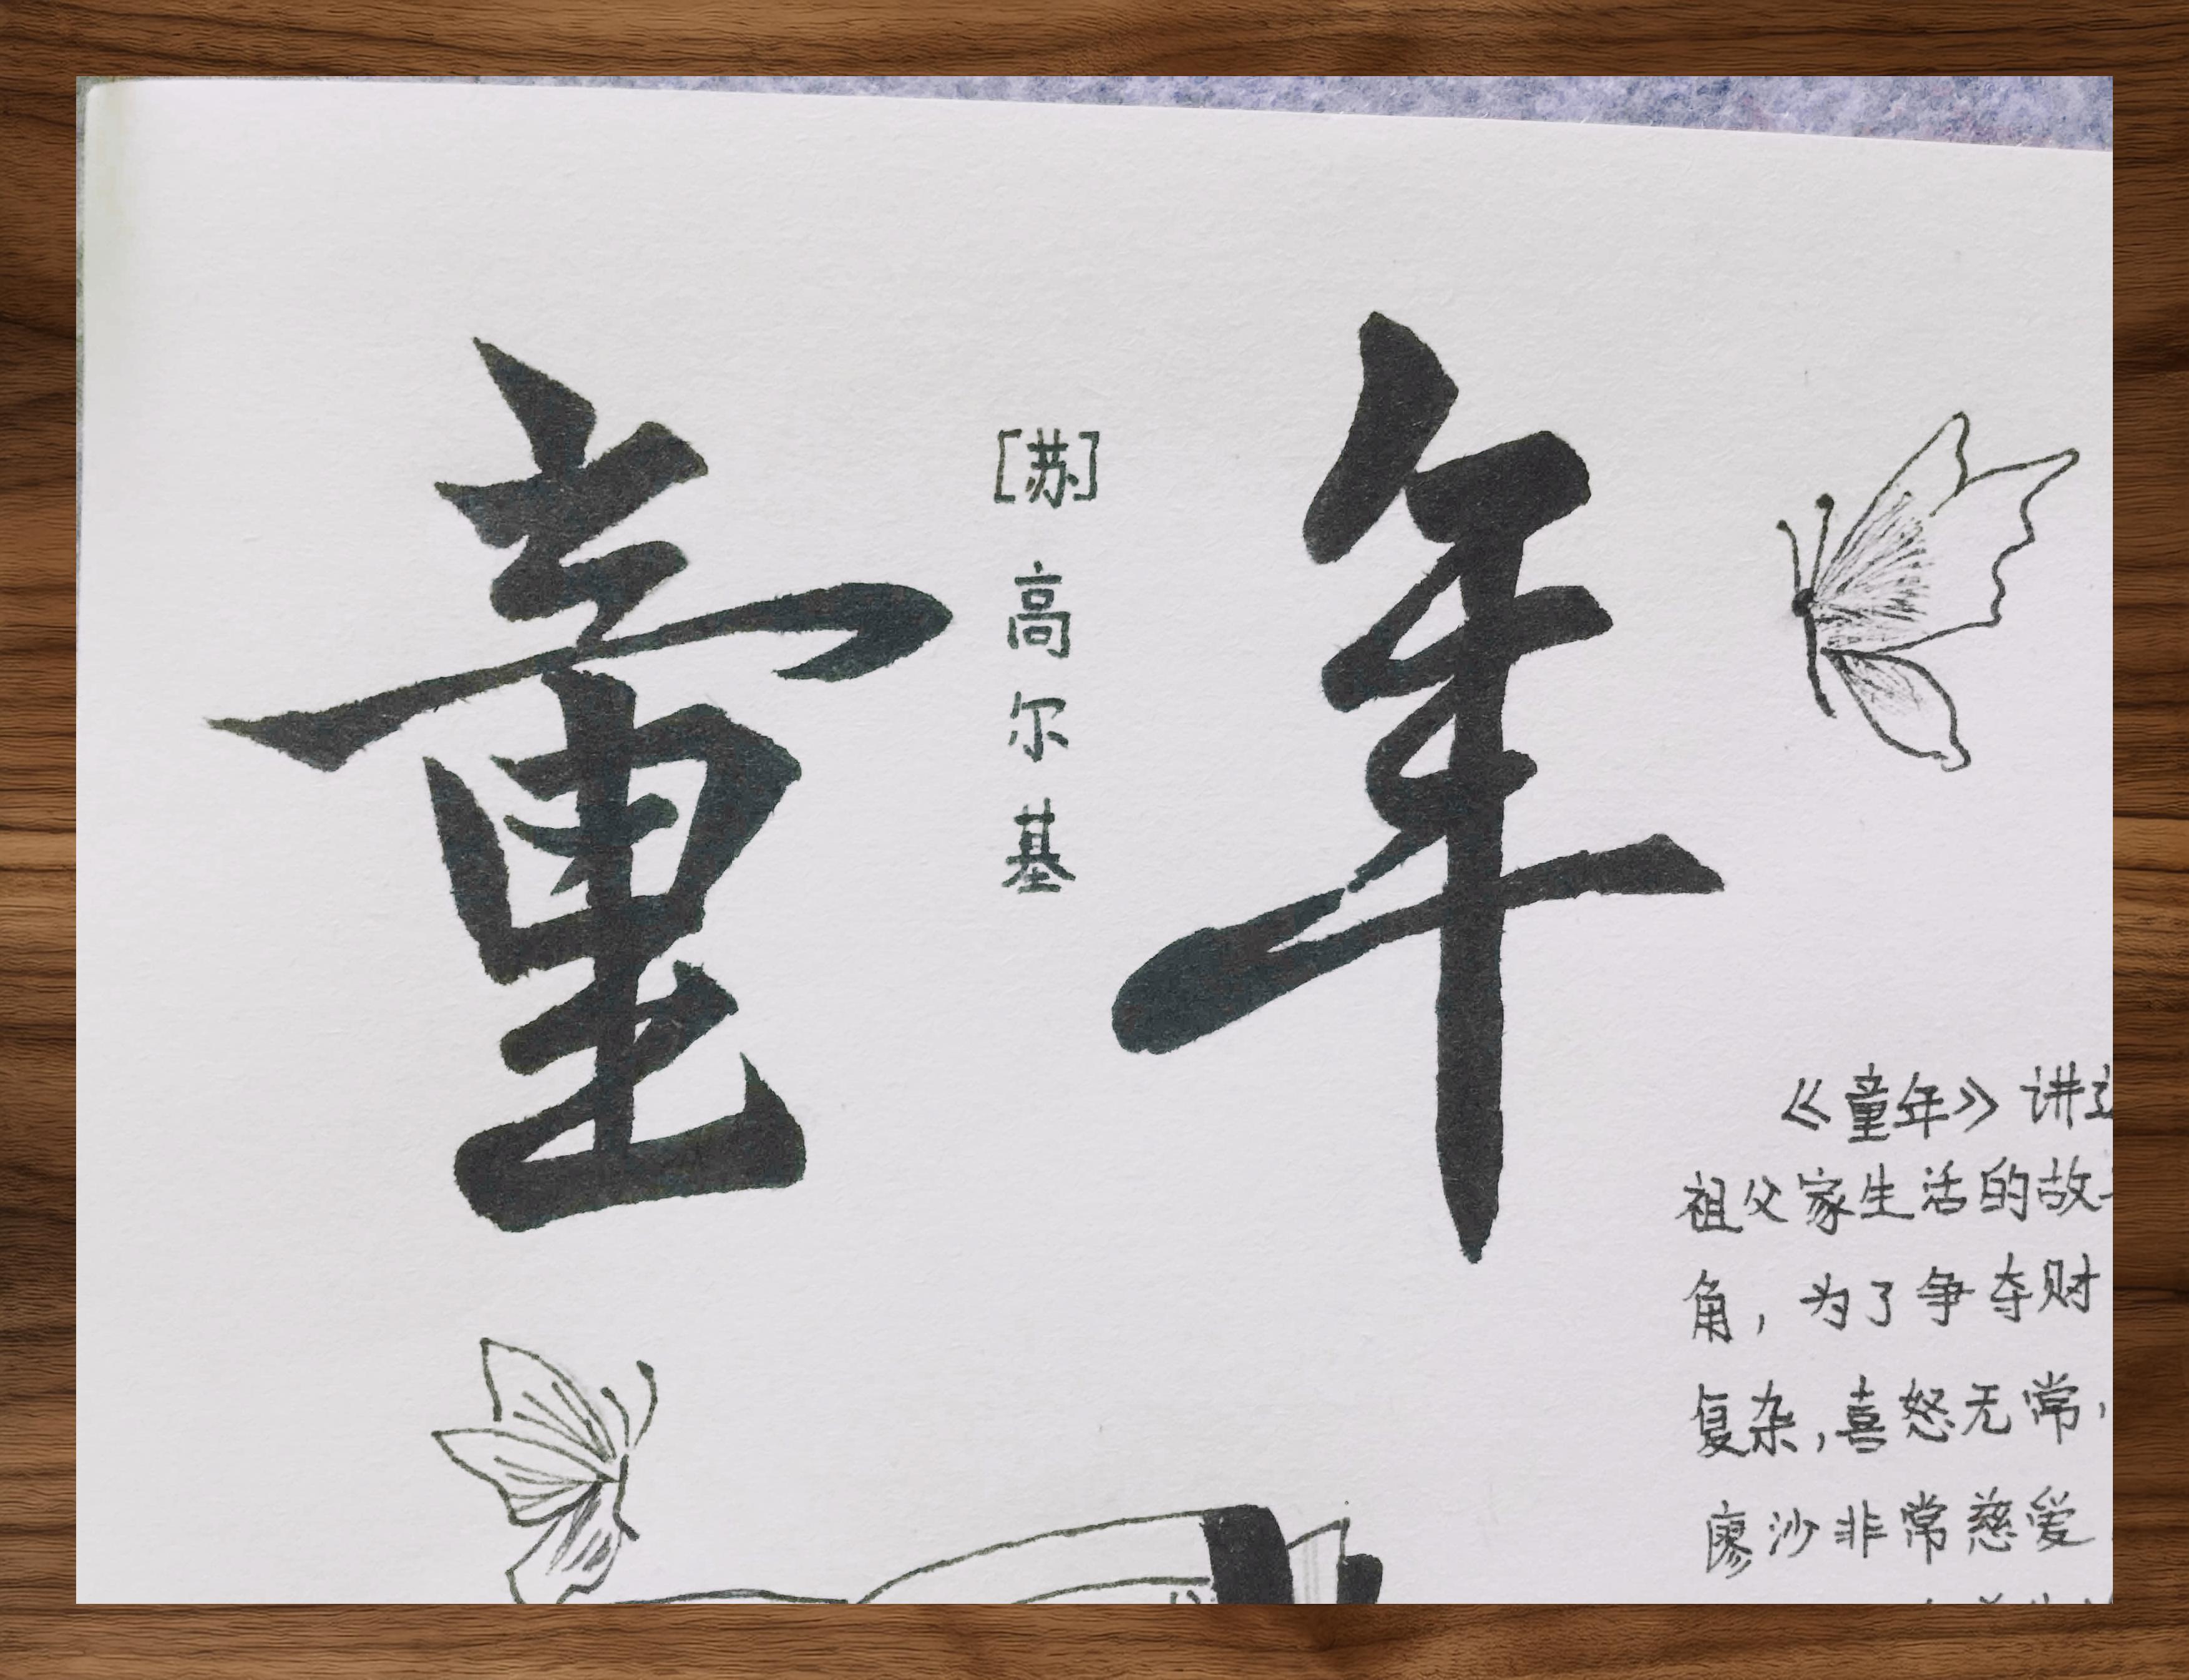 童年
[苏]高尔基
《童年》讲
祖父家生活的故
角，为了争夺财
复杂，喜怒无常，
廖沙非常慈爱